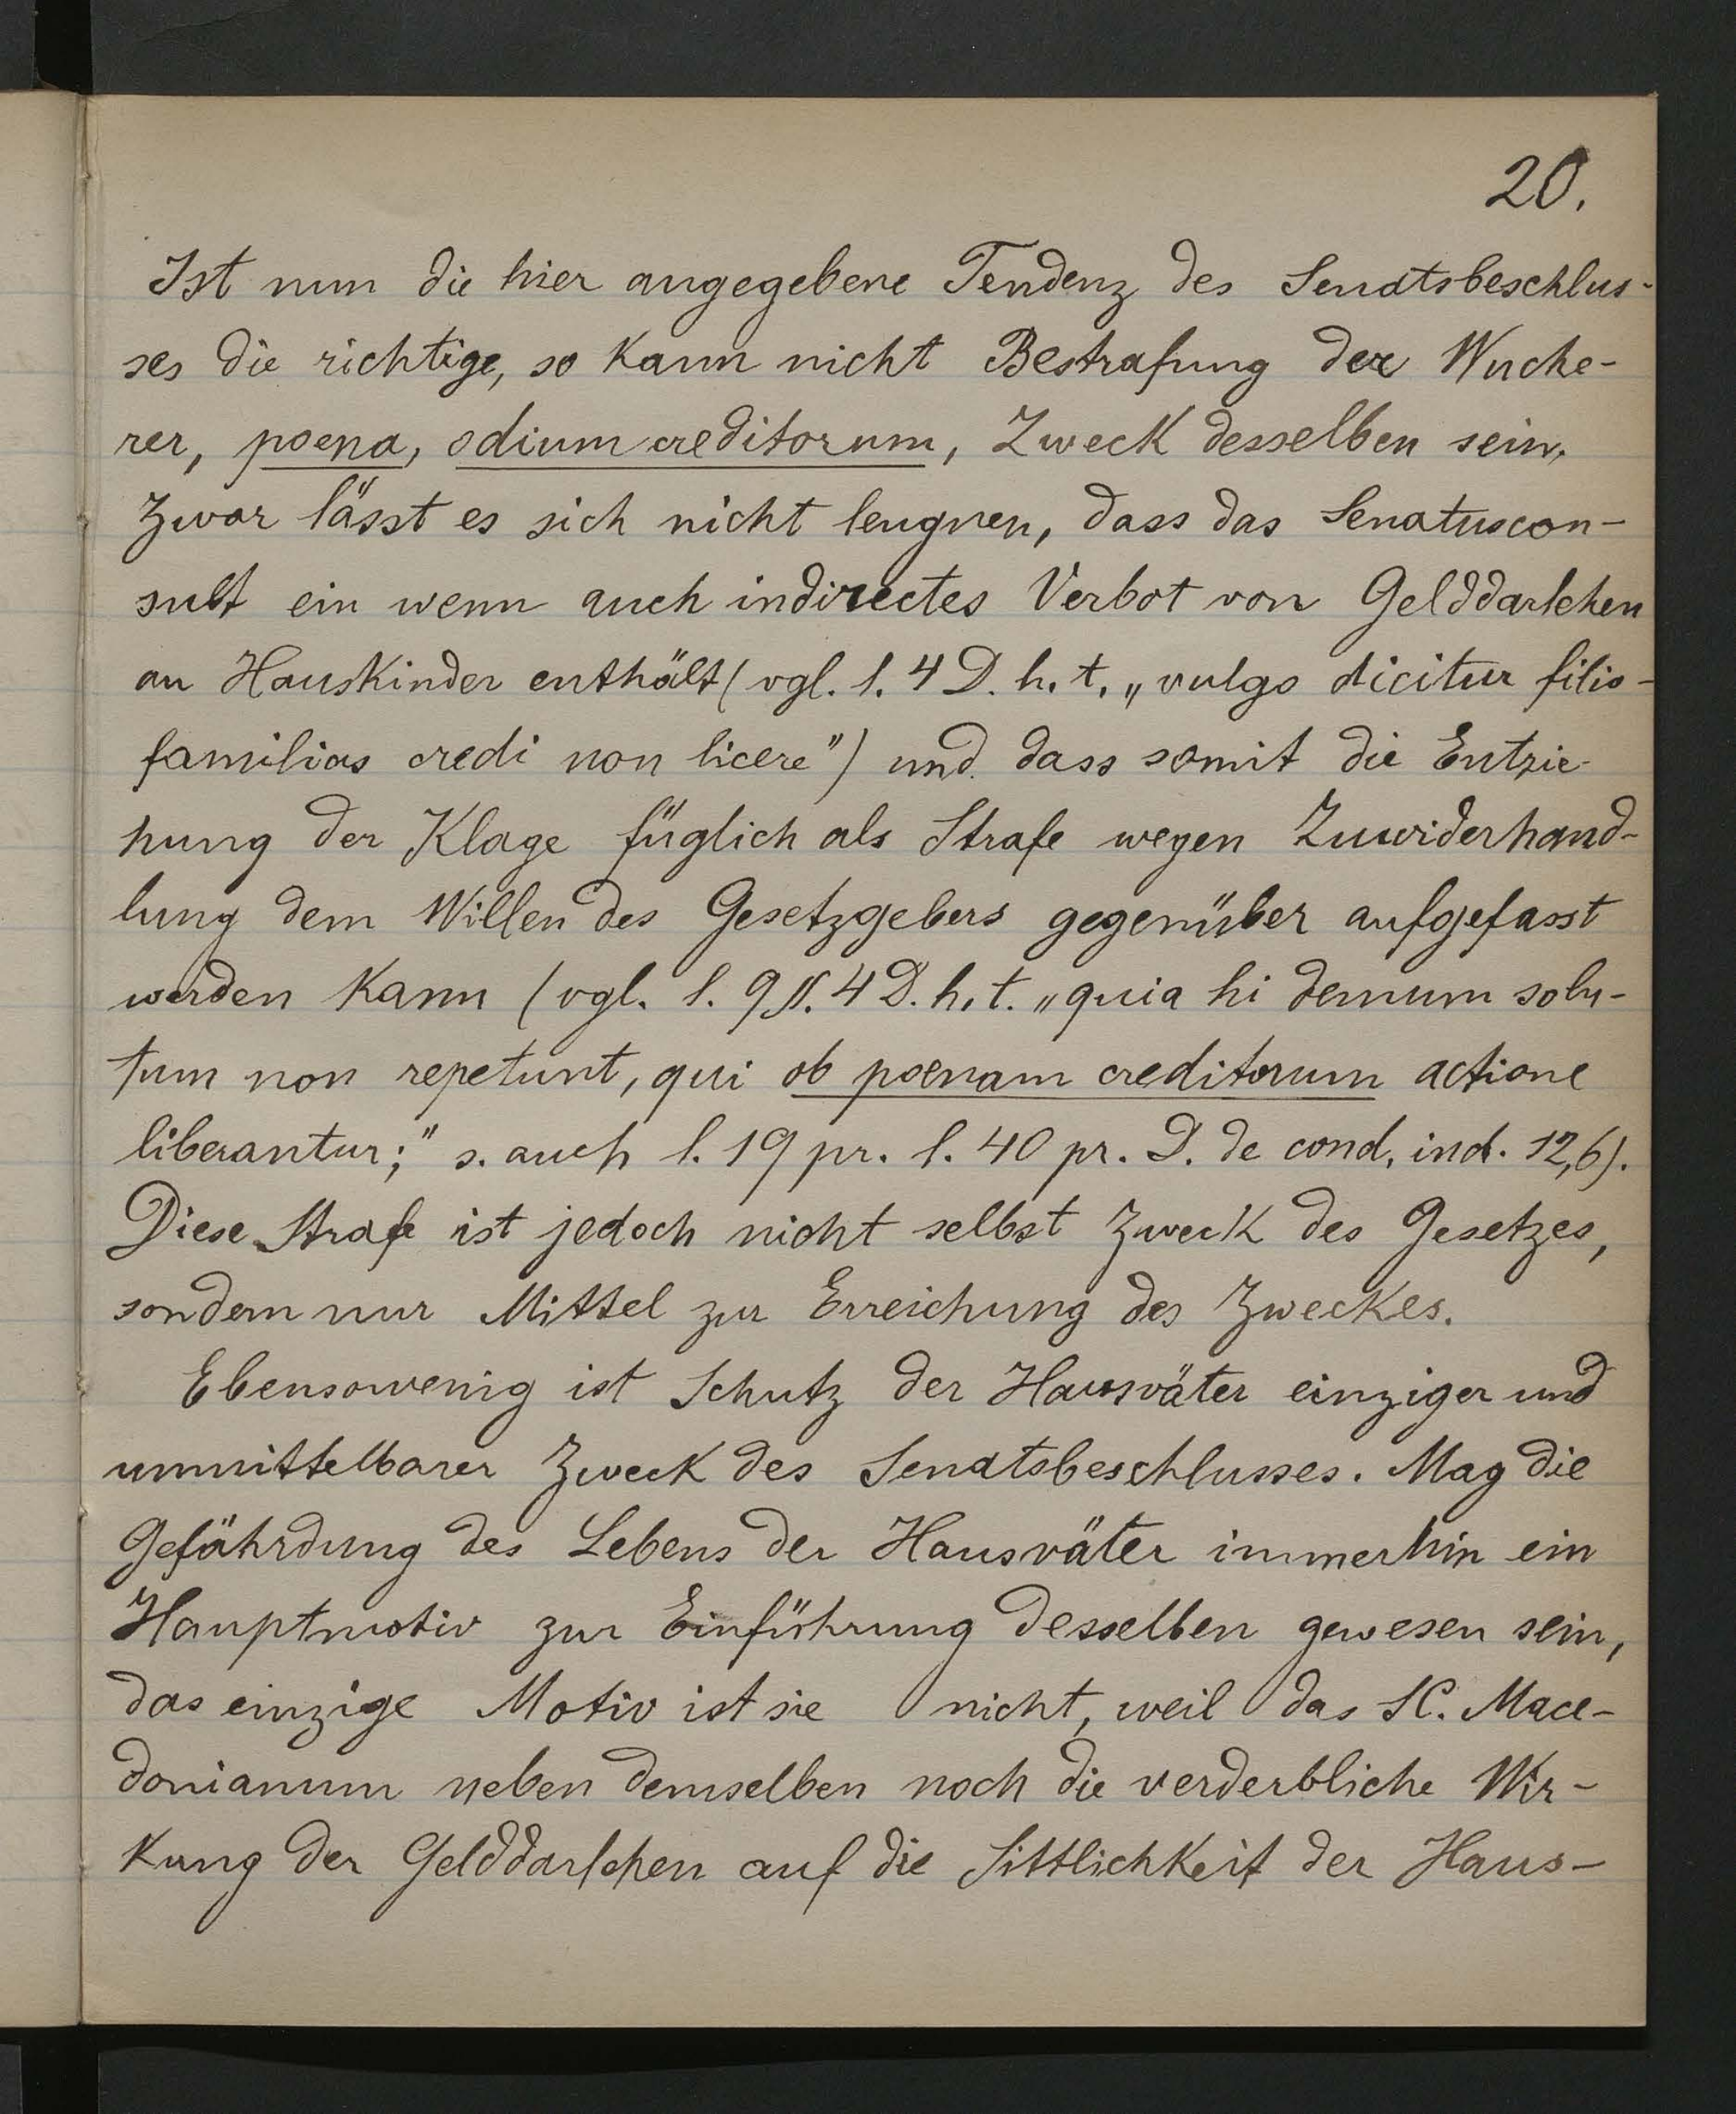 20.
Ist nun die hier angegebene Tendenz des Senatsbeschlus-
ses die richtige, so kann nicht Bestrafung der Wuche-
rer, poena, odium creditorum, Zweck desselben sein.
Zwar lässt es sich nicht leugnen, dass das Senatuscon-
sult ein wenn auch indirectes Verbot von Gelddarlehen
an Hauskinder enthält (vgl. l. 4 D. h. t. „vulgo dicitur filio-
familias credi non licere") und dass somit die Entzie-
hung der Klage füglich als Strafe wegen Zuwiderhand-
lung dem Willen des Gesetzgebers gegenüber aufgefasst
werden kann (vgl. l. 9 §. 4 D. h. t. „quia hi demum solu-
tum non repetunt, qui ob poenam creditorum actione
liberantur;" s. auch l. 19 pr. l. 40 pr. D. de cond. ind. 12,6).
Diese Strafe ist jedoch nicht selbst Zweck des Gesetzes,
sondern nur Mittel zur Erreichung des Zweckes.
Ebensowenig ist Schutz der Hausväter einziger und
unmittelbarer Zweck des Senatsbeschlusses. Mag die
Gefährdung des Lebens der Hausväter immerhin ein
Hauptmotiv zur Einführung desselben gewesen sein,
das einzige Motiv ist sie nicht, weil das SC. Mace-
donianum neben demselben noch die verderbliche Wir-
kung der Gelddarlehen auf die Sittlichkeit der Haus-